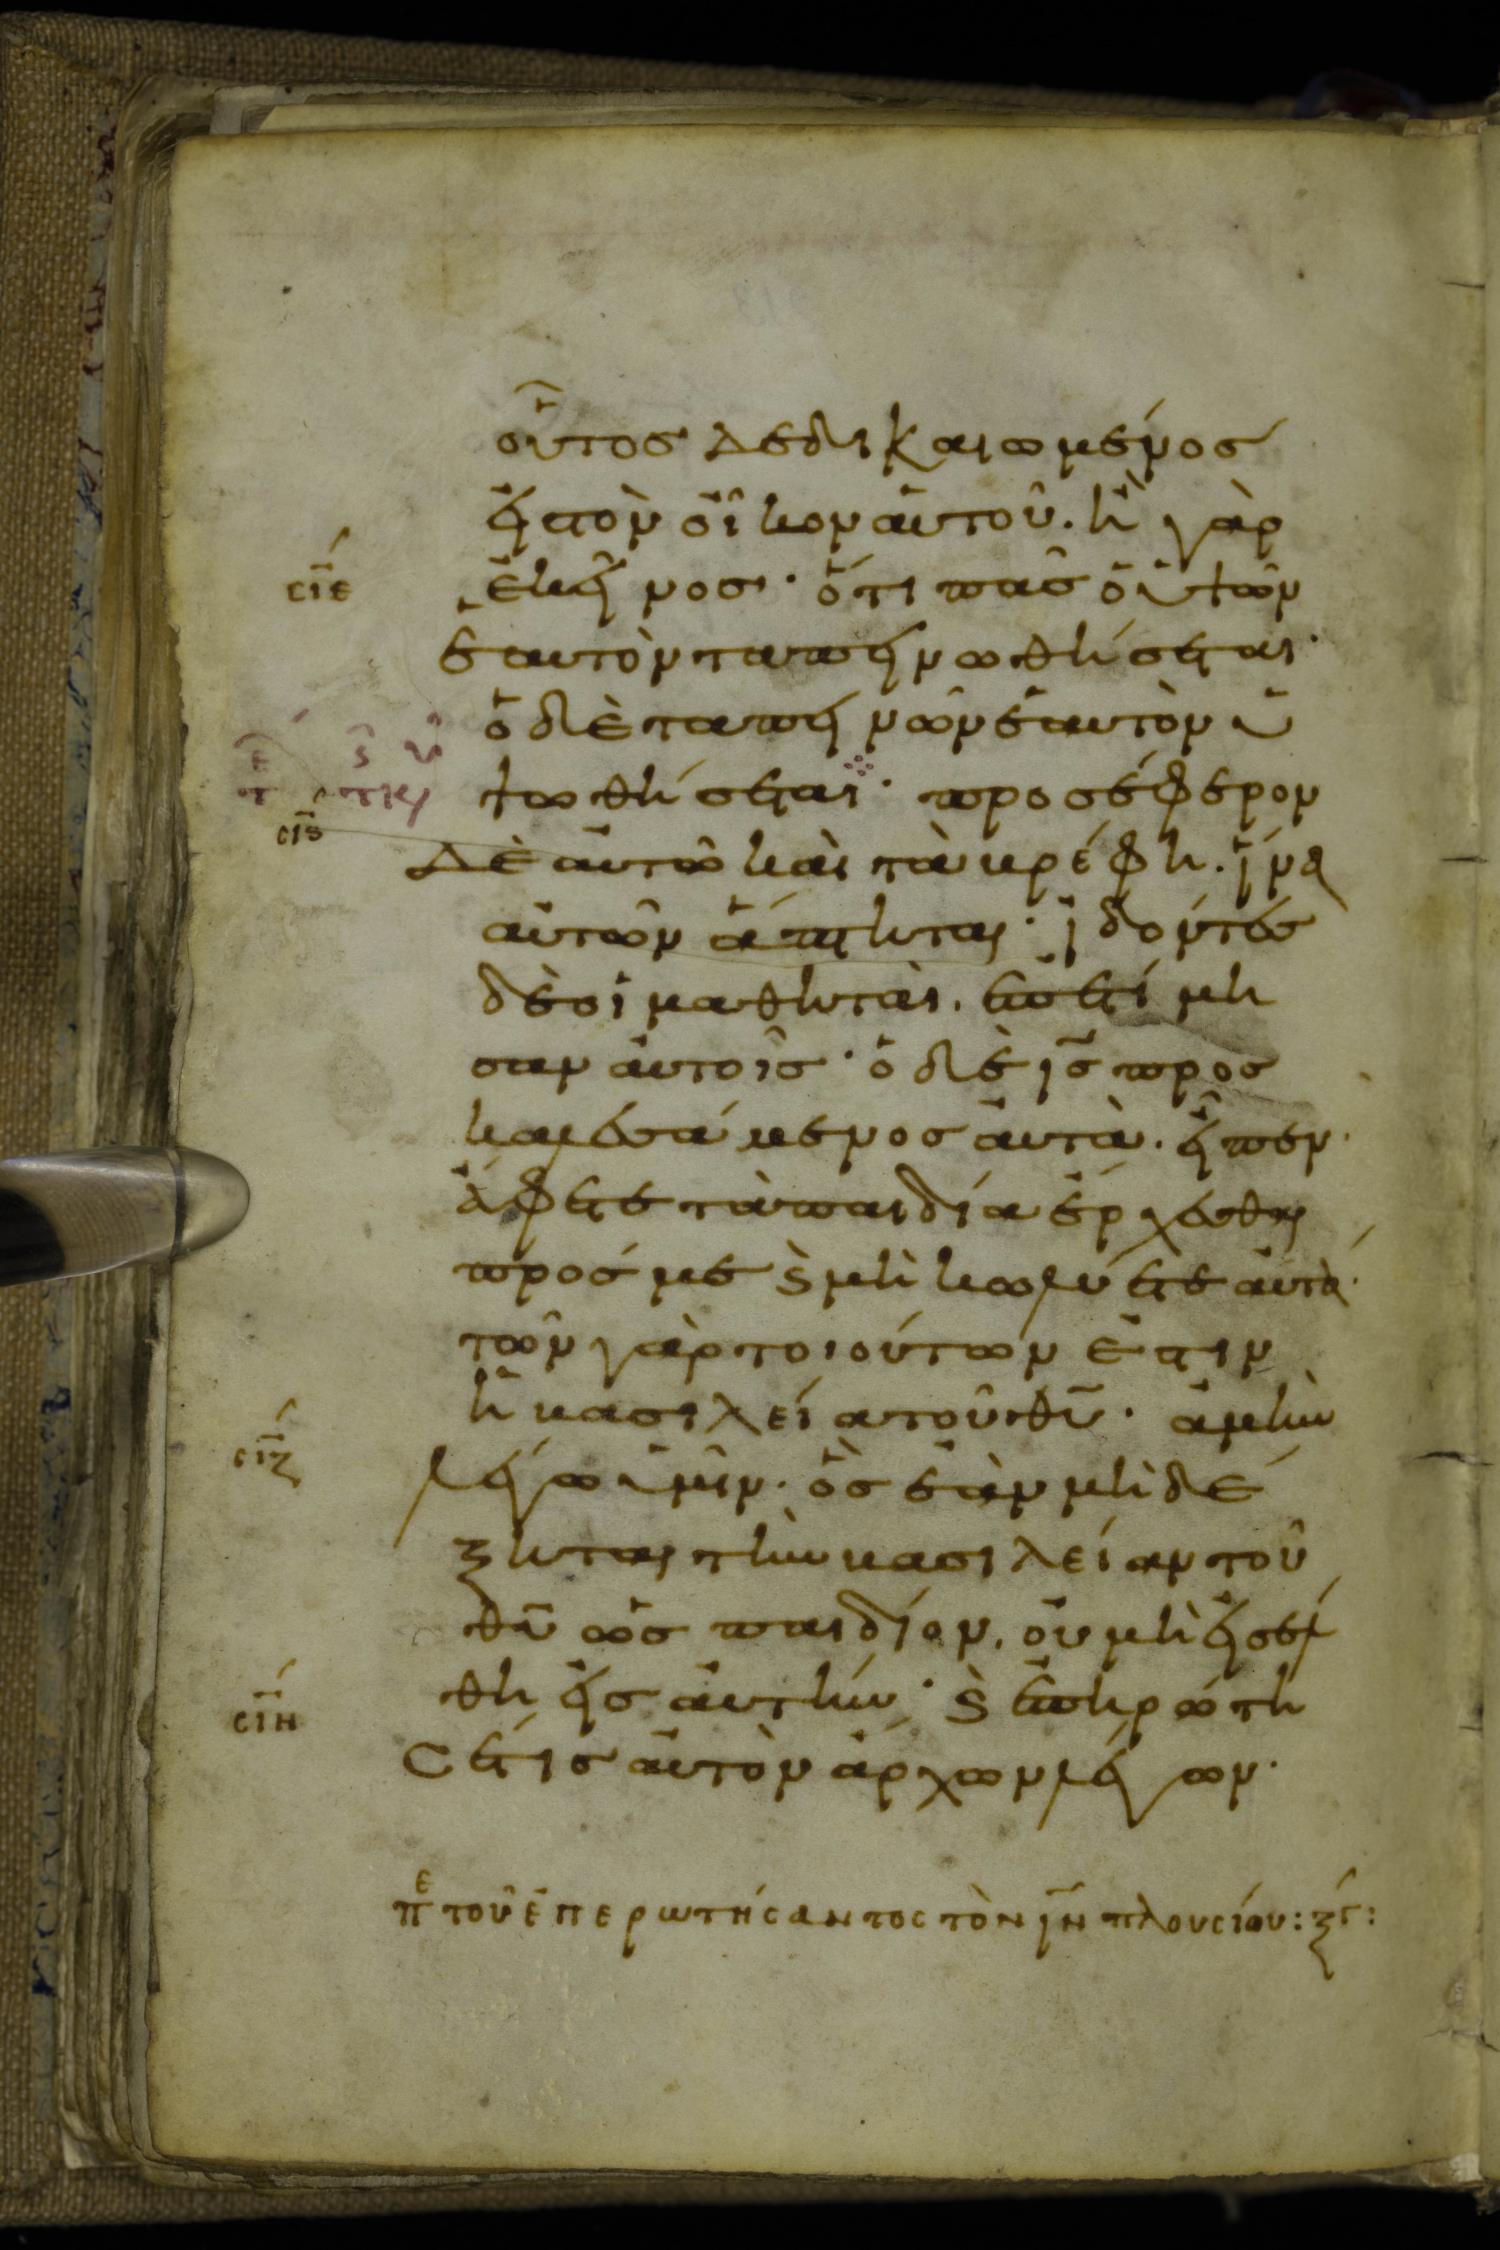 οὗτος δεδικαιωμένος
εἰς τὸν οἶκον αὐτοῦ. ἢ γὰρ
σιε ἐκεῖνος· ὅτι πᾶς ὁ ὑψῶν
ἑαυτὸν ταπεινωθήσεται·
ὁ δὲ ταπεινῶν ἑαυτὸν ὑ
ψωθήσεται· προσέφερον
σις δὲ αὐτῶ καὶ τὰ βρέφη. ἵνα
αὐτῶν ἅπτηται· ἰδόντες
δὲ οἱ μαθηταὶ. ἐπετίμη
σαν αὐτοῖς· ὁ δὲ ις προσ
καλεσάμενος αὐτὰ. εἶπεν·
ἄφετε τὰ παιδία ἔρχεσθαι
πρός με ϗ μὴ κωλύετε αὐτά·
τῶν γὰρ τοιούτων ἐστὶν
ἡ βασιλεία τοῦ θυ· ἀμὴν
σιζ λέγω ὑμῖν· ὃς ἐὰν μὴ δέ
ξηται τὴν βασιλείαν τοῦ
θυ ὡς παιδίον. οὐ μὴ εἰσέλ
θη εἰς αὐτήν· ϗ ἐπηρώτη
σιη
σέ τις αὐτὸν ἄρχων λέγων·
πε τοῦ ἐπερωτήσαντος τὸν ιν πλουσίου: ξγ: